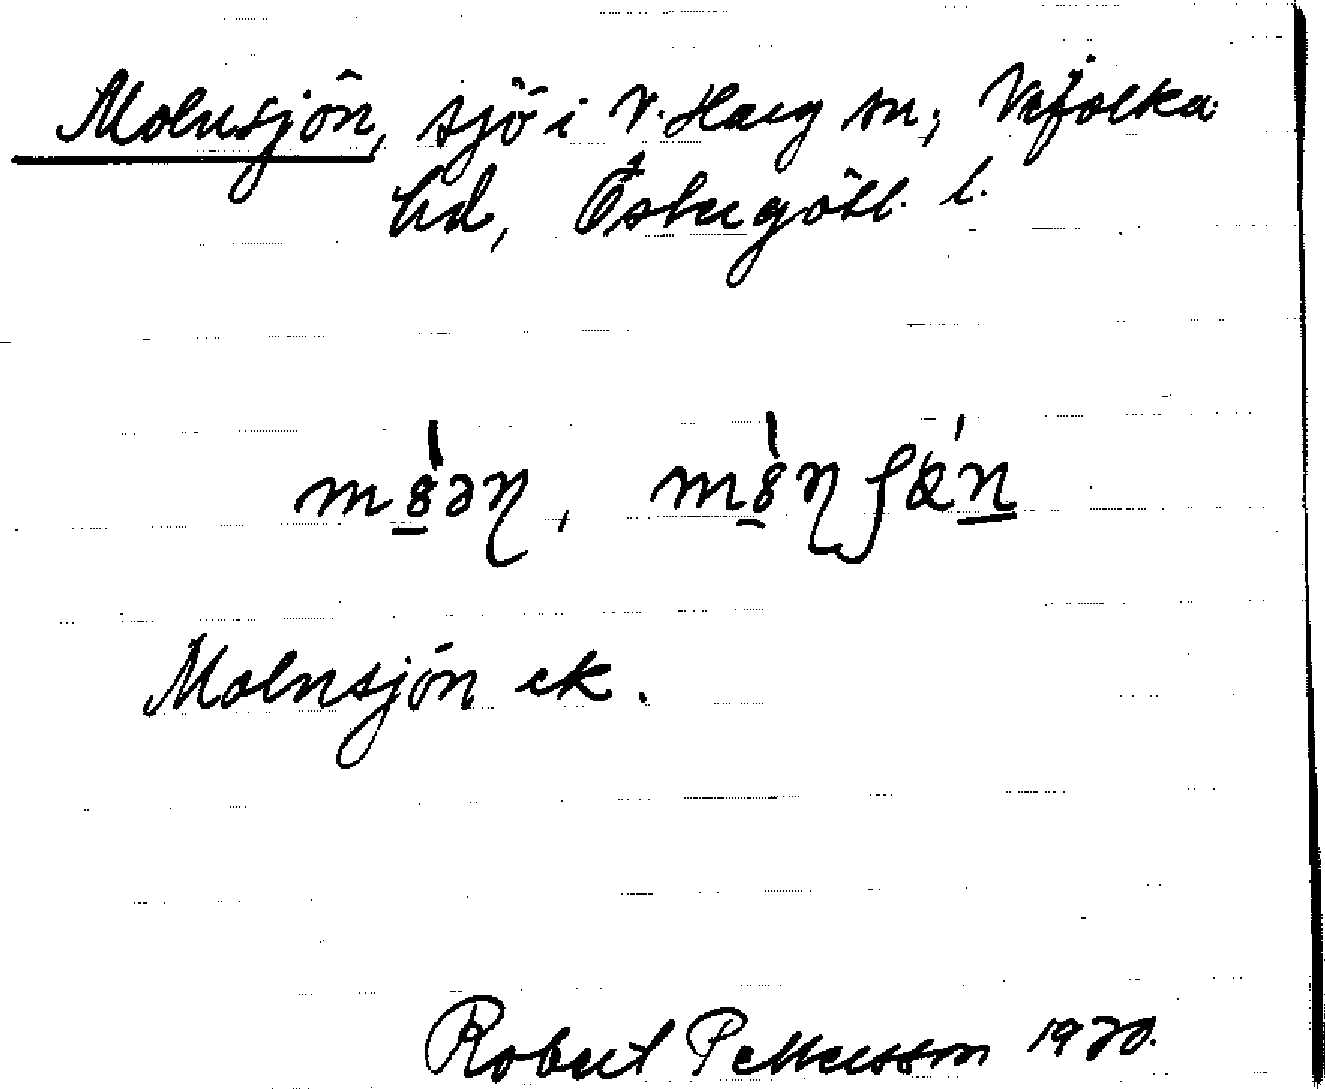 Molnsjön, sjö i V. Harg sn, Vifolka
hd, Östergötl. l.
Molnsjön ek.
Robert Pettersson 1920.